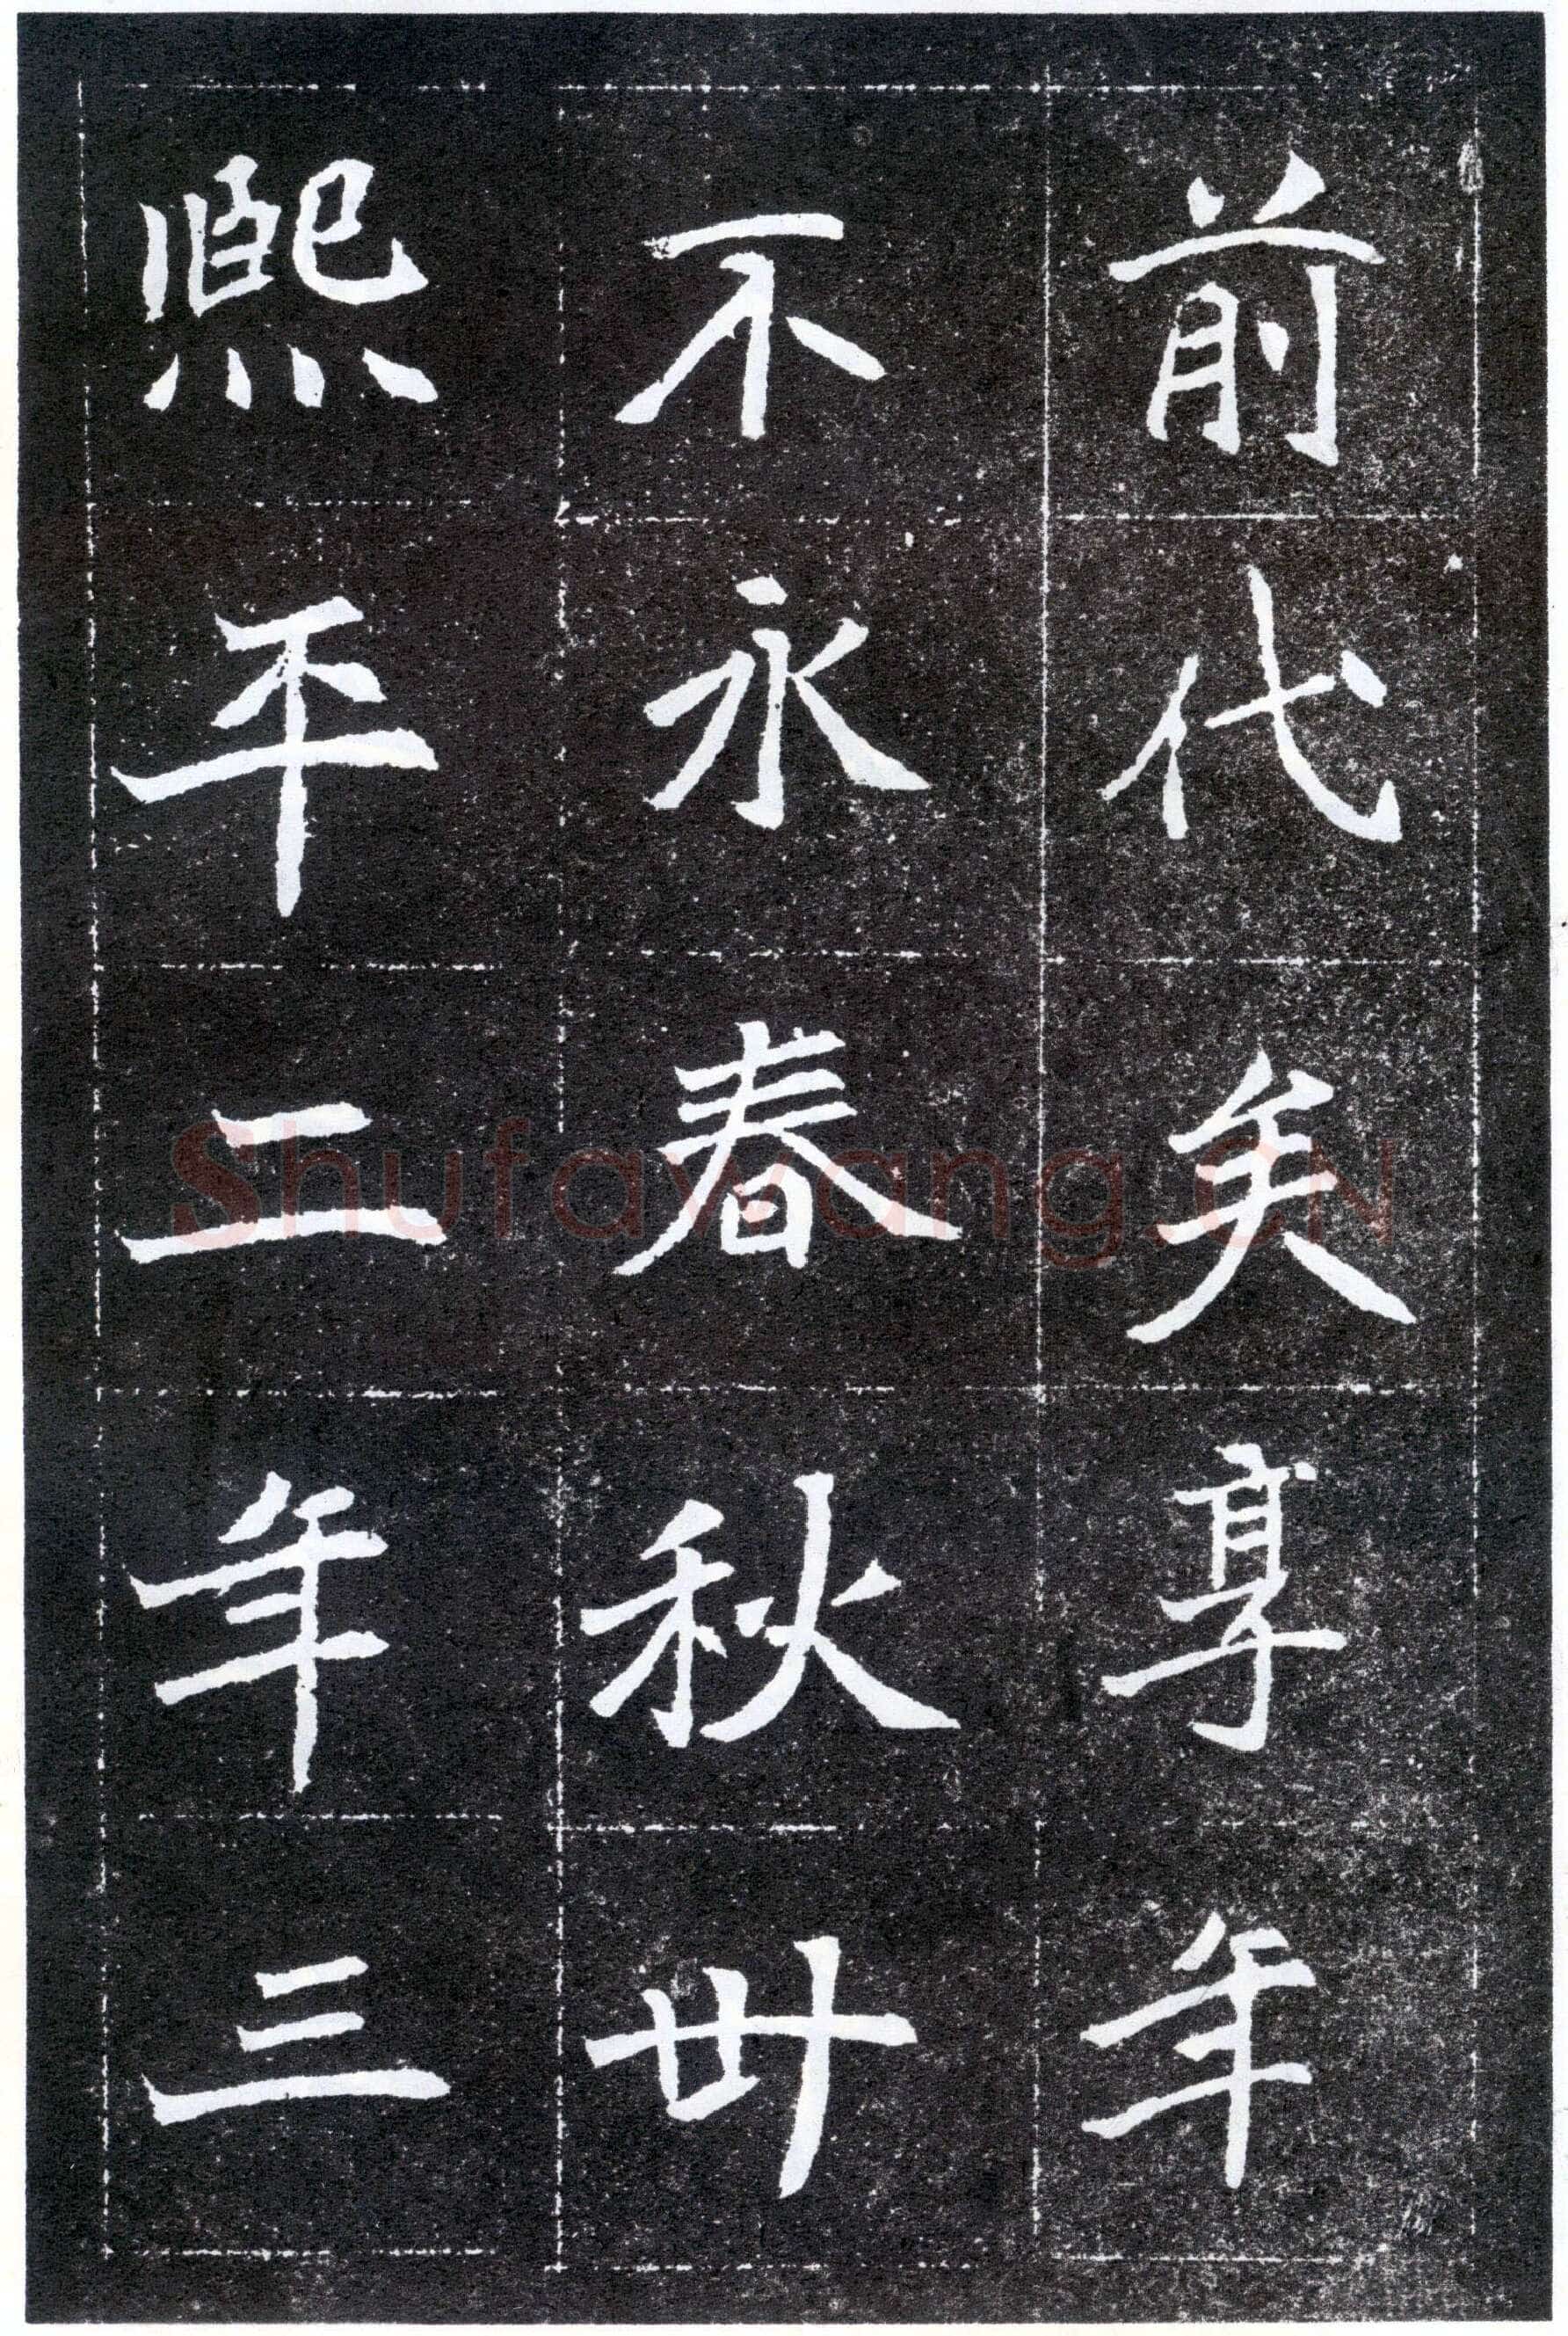 前代矣享年
不永春秋卅
熙平二年三
Shufawang.CN